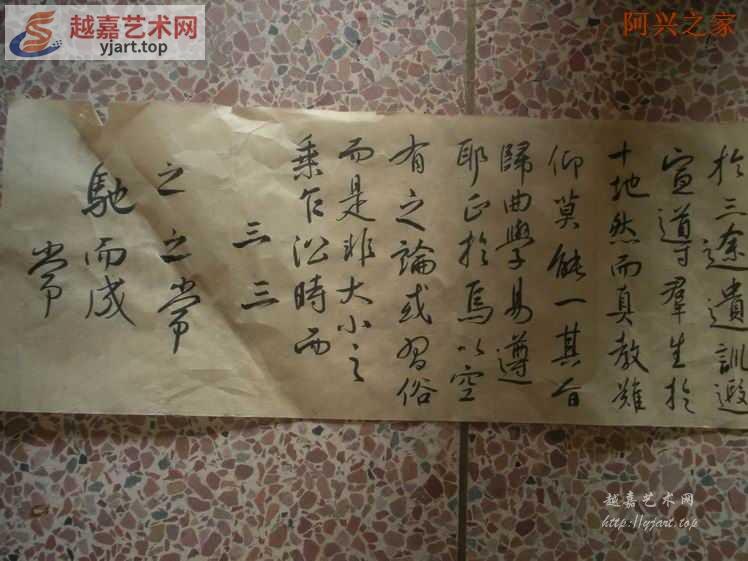 越嘉艺术网
yjart.top
阿兴之家
於三途遺訓遐
宣導羣生於
十地然而真教難
仰莫能一其旨
歸曲學易遵
耶正於焉以空
有之論或習俗
而是非大小之
乘乍沿時而
三三
之之常
馳而成
常
越嘉艺术网
http://yjart.top